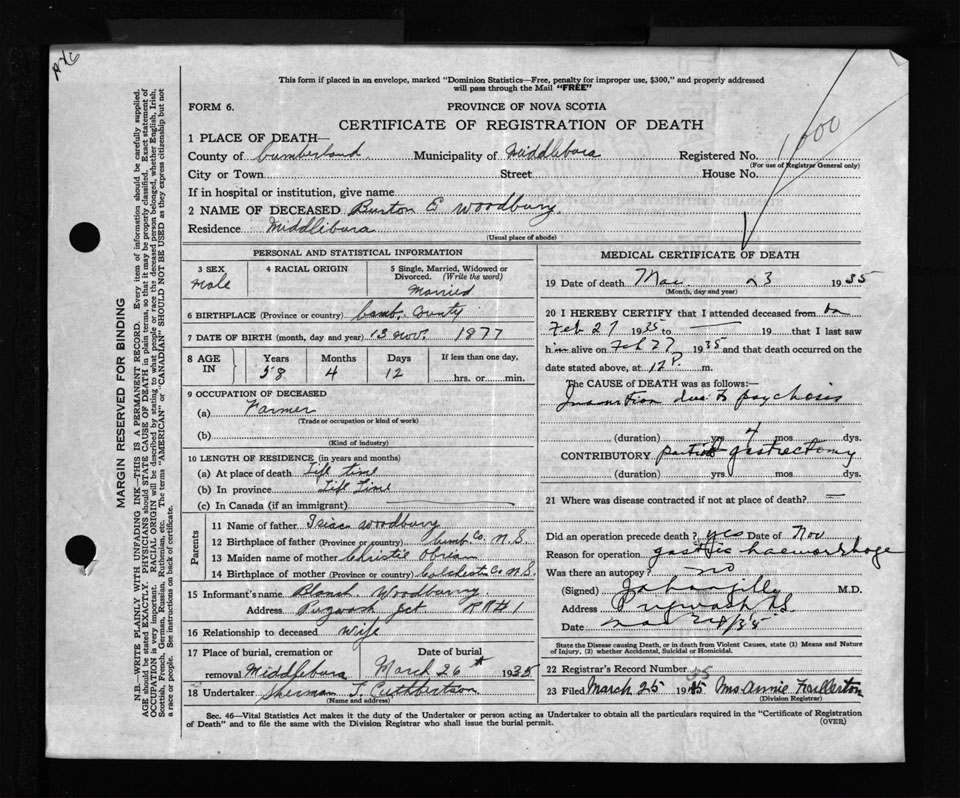 This form if placed in an envelope, marked "Dominion Statistics—Free, penalty for improper use, $300," and properly addressed
will pass through the Mail "FREE"
FORM 6.
PROVINCE OF NOVA SCOTIA
CERTIFICATE OF REGISTRATION OF DEATH
1 PLACE OF DEATH—
County of Cumberland. Municipality of Middleboro Registered No. 1600
(For use of Registrar General only)
City or Town Street House No.
If in hospital or institution, give name
2 NAME OF DECEASED Burton E Woodbury
Residence Middleboro
(Usual place of abode)
PERSONAL AND STATISTICAL INFORMATION
3 SEX
Male
4 RACIAL ORIGIN
5 Single, Married, Widowed or
Divorced. (Write the word)
Married
6 BIRTHPLACE (Province or country) Cumb. County
7 DATE OF BIRTH (month, day and year) 13 Nov. 1877
8 AGE IN
Years Months Days If less than one day,
58 4 12 hrs. or min.
9 OCCUPATION OF DECEASED
(a) Farmer
(Trade or occupation or kind of work)
(b)
(Kind of industry)
10 LENGTH OF RESIDENCE (in years and months)
(a) At place of death Life time
(b) In province Life Time
(c) In Canada (if an immigrant)
Parents
11 Name of father Isiac Woodbury
12 Birthplace of father (Province or country) Cumb. Co. N.S.
13 Maiden name of mother Christie Obrian
14 Birthplace of mother (Province or country) Colchest. Co N.S.
15 Informant's name Blanch Woodburry
Address Pugwash Jct RR#1
16 Relationship to deceased Wife
17 Place of burial, cremation or Date of burial
removal Middleboro March 26 1935
18 Undertaker Sherman T. Cuthbertson
(Name and address)
MEDICAL CERTIFICATE OF DEATH
19 Date of death Mar. 23 1935
(Month, day and year)
20 I HEREBY CERTIFY that I attended deceased from
Feb 27 1935 to — 19 that I last saw
him alive on Feb 27 1935 and that death occurred on the
date stated above, at 12 P. m.
The CAUSE OF DEATH was as follows:—
Inanition due to psychosis
(duration) yrs. mos. dys.
CONTRIBUTORY partial gastrectomy
(duration) yrs. mos. dys.
21 Where was disease contracted if not at place of death? —
Did an operation precede death? yes Date of Nov
Reason for operation gastric haemorrhage
Was there an autopsy? no
(Signed) M.D.
Address Pugwash NS
Date Mar 24/35
State the Disease causing Death, or in death from Violent Causes, state (1) Means and Nature
of Injury, (2) whether Accidental, Suicidal or Homicidal.
22 Registrar's Record Number 55
23 Filed March 25 1935 Mrs Annie Fullerton
(Division Registrar)
Sec. 46—Vital Statistics Act makes it the duty of the Undertaker or person acting as Undertaker to obtain all the particulars required in the "Certificate of Registration
of Death" and to file the same with the Division Registrar who shall issue the burial permit. (OVER)
MARGIN RESERVED FOR BINDING
N.B.—WRITE PLAINLY WITH UNFADING INK—THIS IS A PERMANENT RECORD. Every item of information should be carefully supplied.
AGE should be stated EXACTLY. PHYSICIANS should STATE CAUSE OF DEATH in plain terms, so that it may be properly classified. Exact statement of
OCCUPATION is very important. RACIAL ORIGIN will be described by stating to what people or race the deceased person belonged, whether English, Irish,
Scottish, French, German, Russian, Ruthenian, etc. The terms "AMERICAN" or "CANADIAN" SHOULD NOT BE USED as they express citizenship but not
a race or people. See instructions on back of certificate.